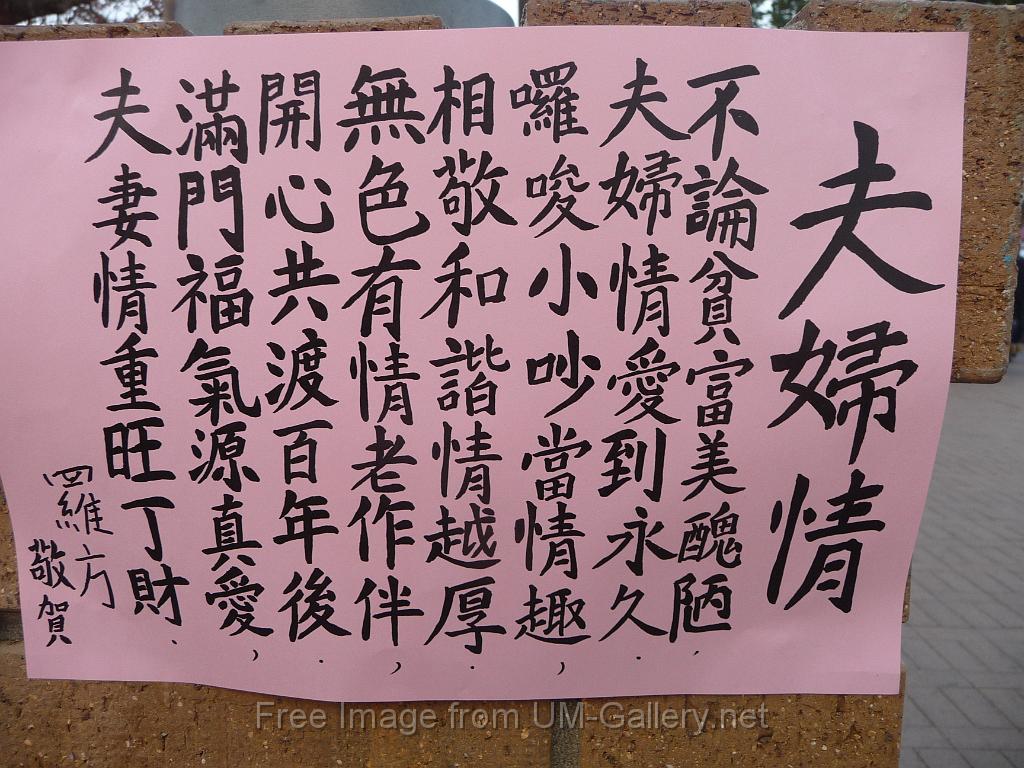 夫婦情
不論貧富美醜陋.
夫婦情愛到永久.
囉唆小吵當情趣,
相敬和諧情越厚.
無色有情老作伴,
開心共渡百年後.
滿門福氣源真愛,
夫妻情重旺丁財.
羅維方
敬賀
Free Image from UM-Gallery.net